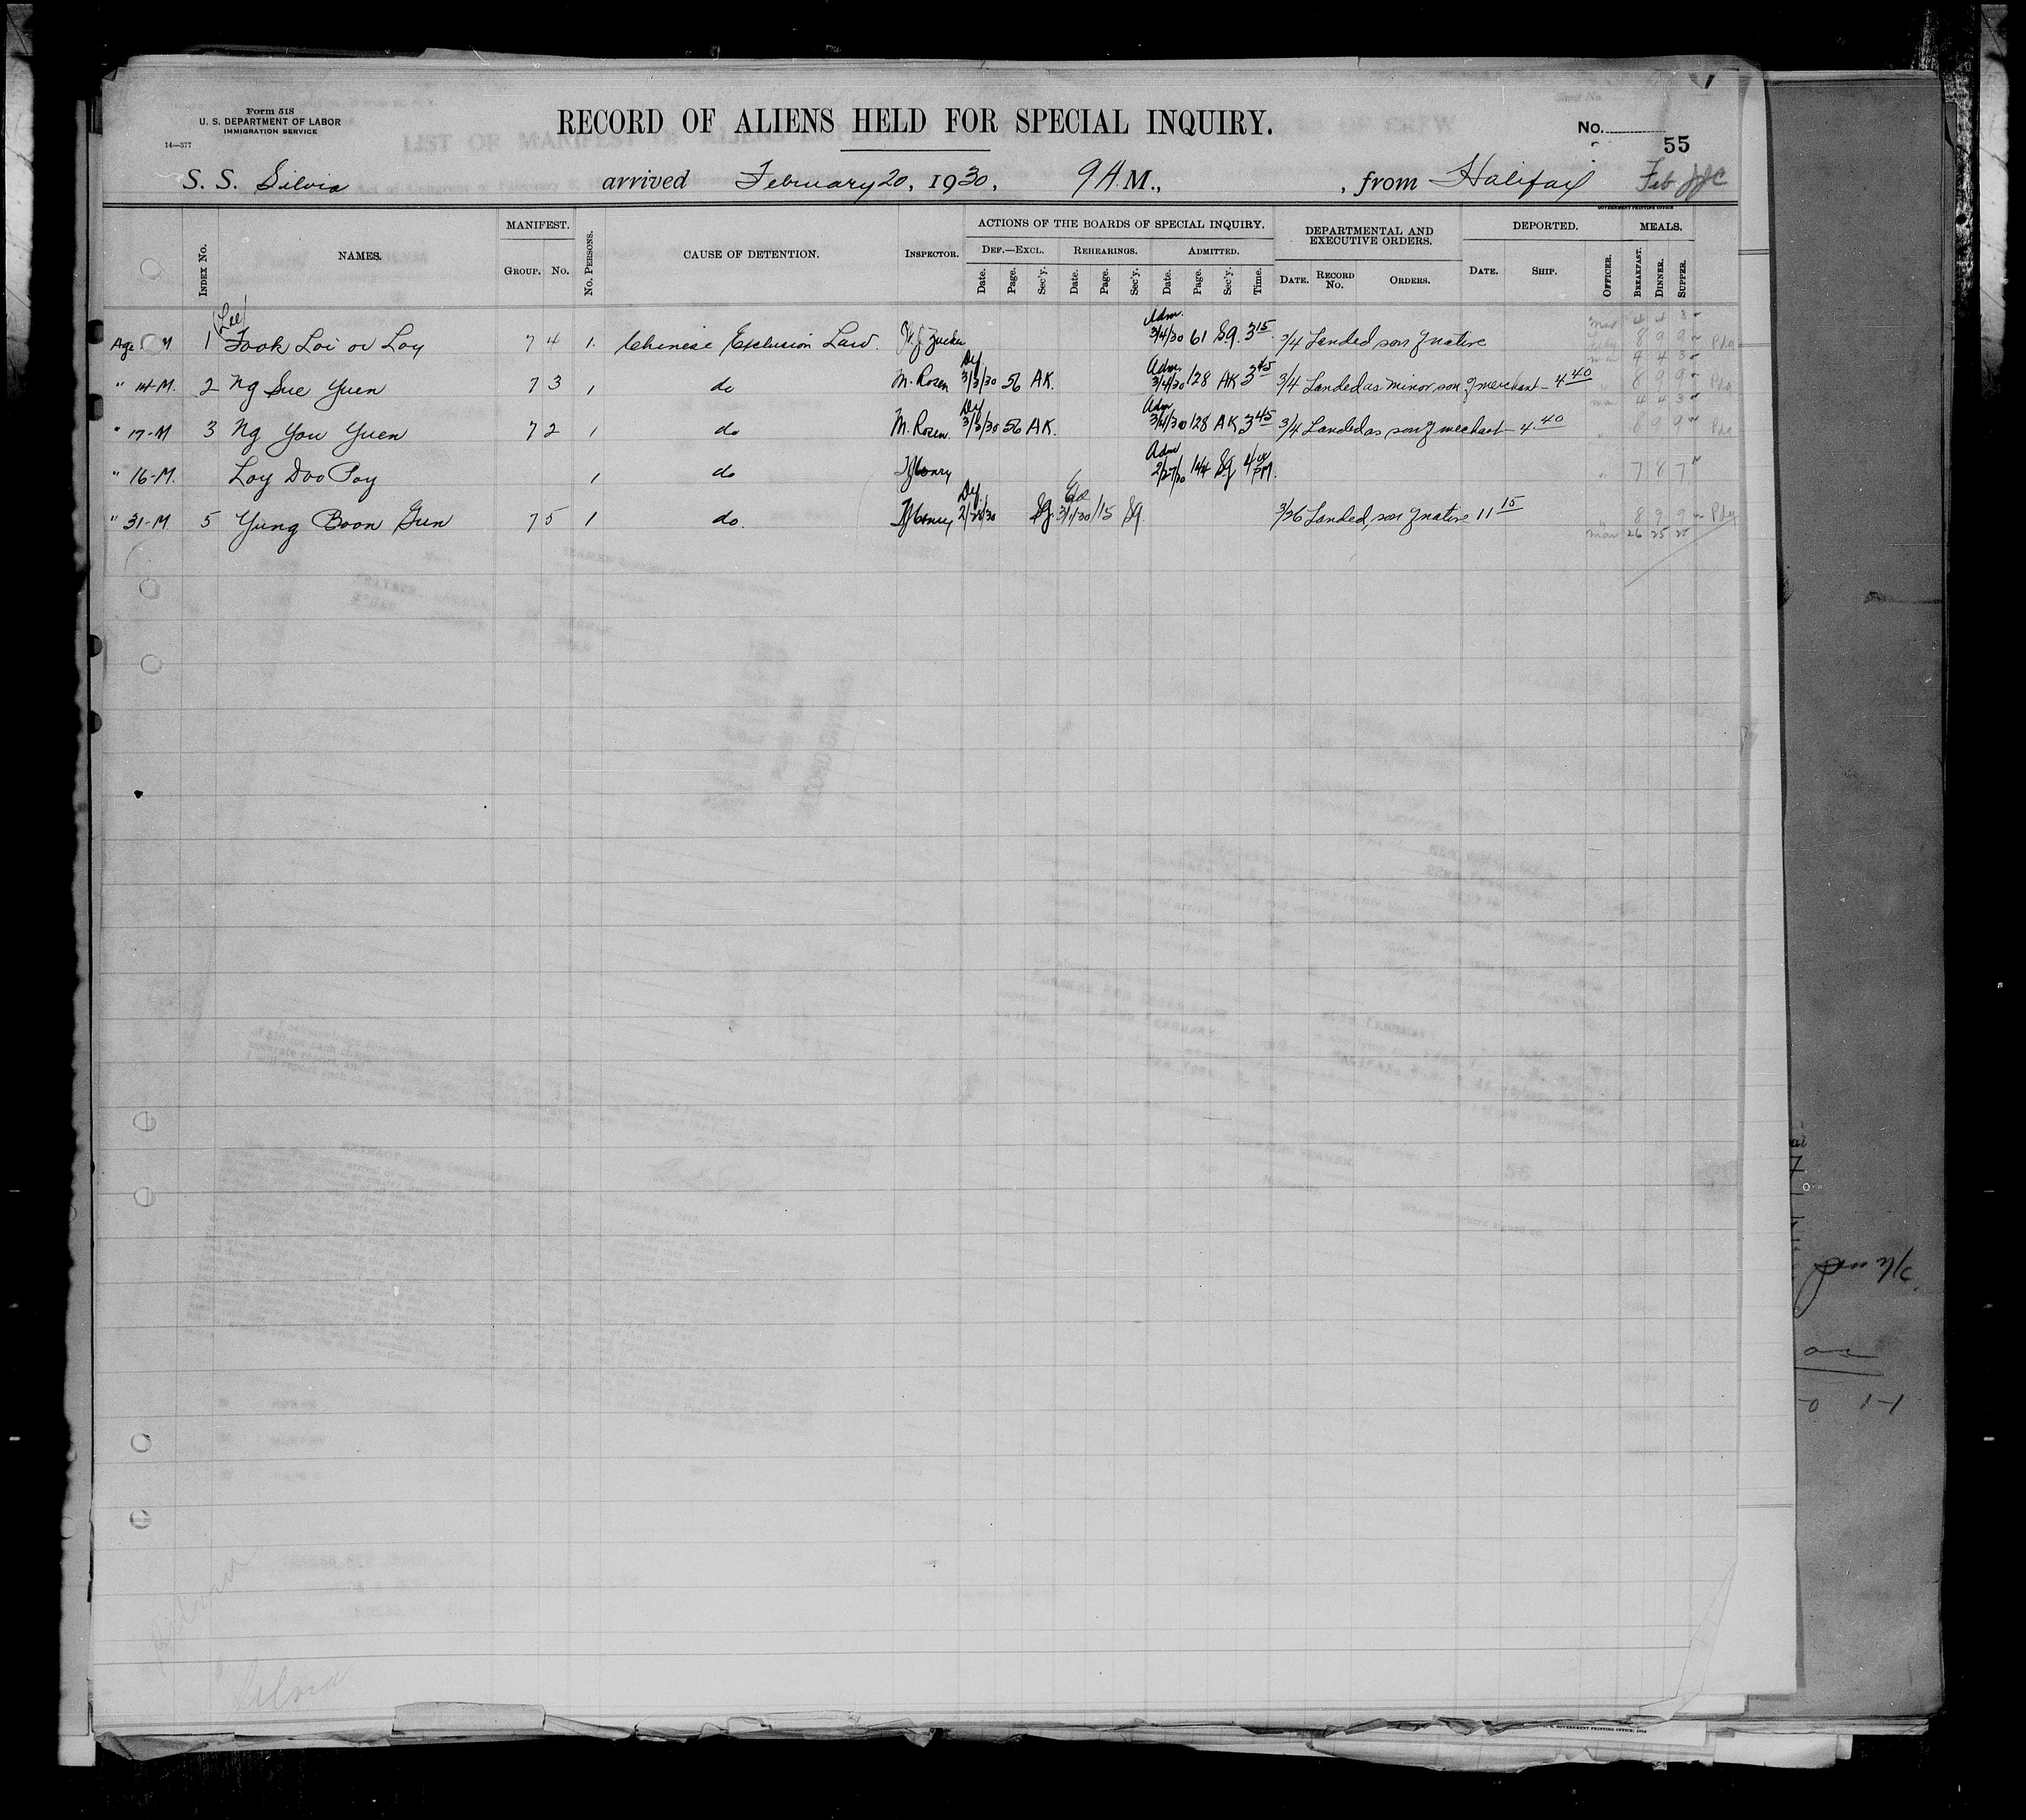 Form 518
U. S. DEPARTMENT OF LABOR
IMMIGRATION SERVICE
14—377
RECORD OF ALIENS HELD FOR SPECIAL INQUIRY.
No.
55
S. S. Silvia arrived February 20, 1930, 9 A.M., , from Halifax Feb
GOVERNMENT PRINTING OFFICE
INDEX No. NAMES. MANIFEST. GROUP. No. No. PERSONS. CAUSE OF DETENTION. INSPECTOR. ACTIONS OF THE BOARDS OF SPECIAL INQUIRY. DEF.—EXCL. REHEARINGS. ADMITTED. DEPARTMENTAL AND EXECUTIVE ORDERS. DEPORTED. MEALS.
Date. Page. Sec'y. Date. Page. Sec'y. Date. Page. Sec'y. Time. DATE. RECORD No. ORDERS. DATE. SHIP. OFFICER. BREAKFAST. DINNER. SUPPER.
(Lee)
Adm.
Age M. 1 Fook Loi or Loy 7 4 1 Chinese Exclusion Law. 3/4/30 61 Sq. 3 15 3/4 Landed son of native 8 9 9
Df. Adm. 4 4 3
" 14-M. 2 Ng Sue Yuen 7 3 1 do M. Rosen 3/3/30 56 AK. 3/4/30 128 AK 3 45 3/4 Landed as minor son of merchant - 4 40 8 9 9
Df. Adm 4 4 3
" 17-M 3 Ng You Yuen 7 2 1 do M. Rosen. 3/3/30 56 AK. 3/4/30 128 AK 3 45 3/4 Landed as son of mechant - 4.40 8 9 9
Adm
" 16-M. Loy Doo Poy 1 do Henry 2/27/30 144 Sq 4 PM. 7 8 7
Df.
" 31-M. 5 Yung Boon Gun 7 5 1 do. Henry 2/28/30 Sq. 3/1/30 115 Sq. 3/26 Landed, son of native 11 15 8 9 9
Mar 26 25 25
Silvia
Silvia